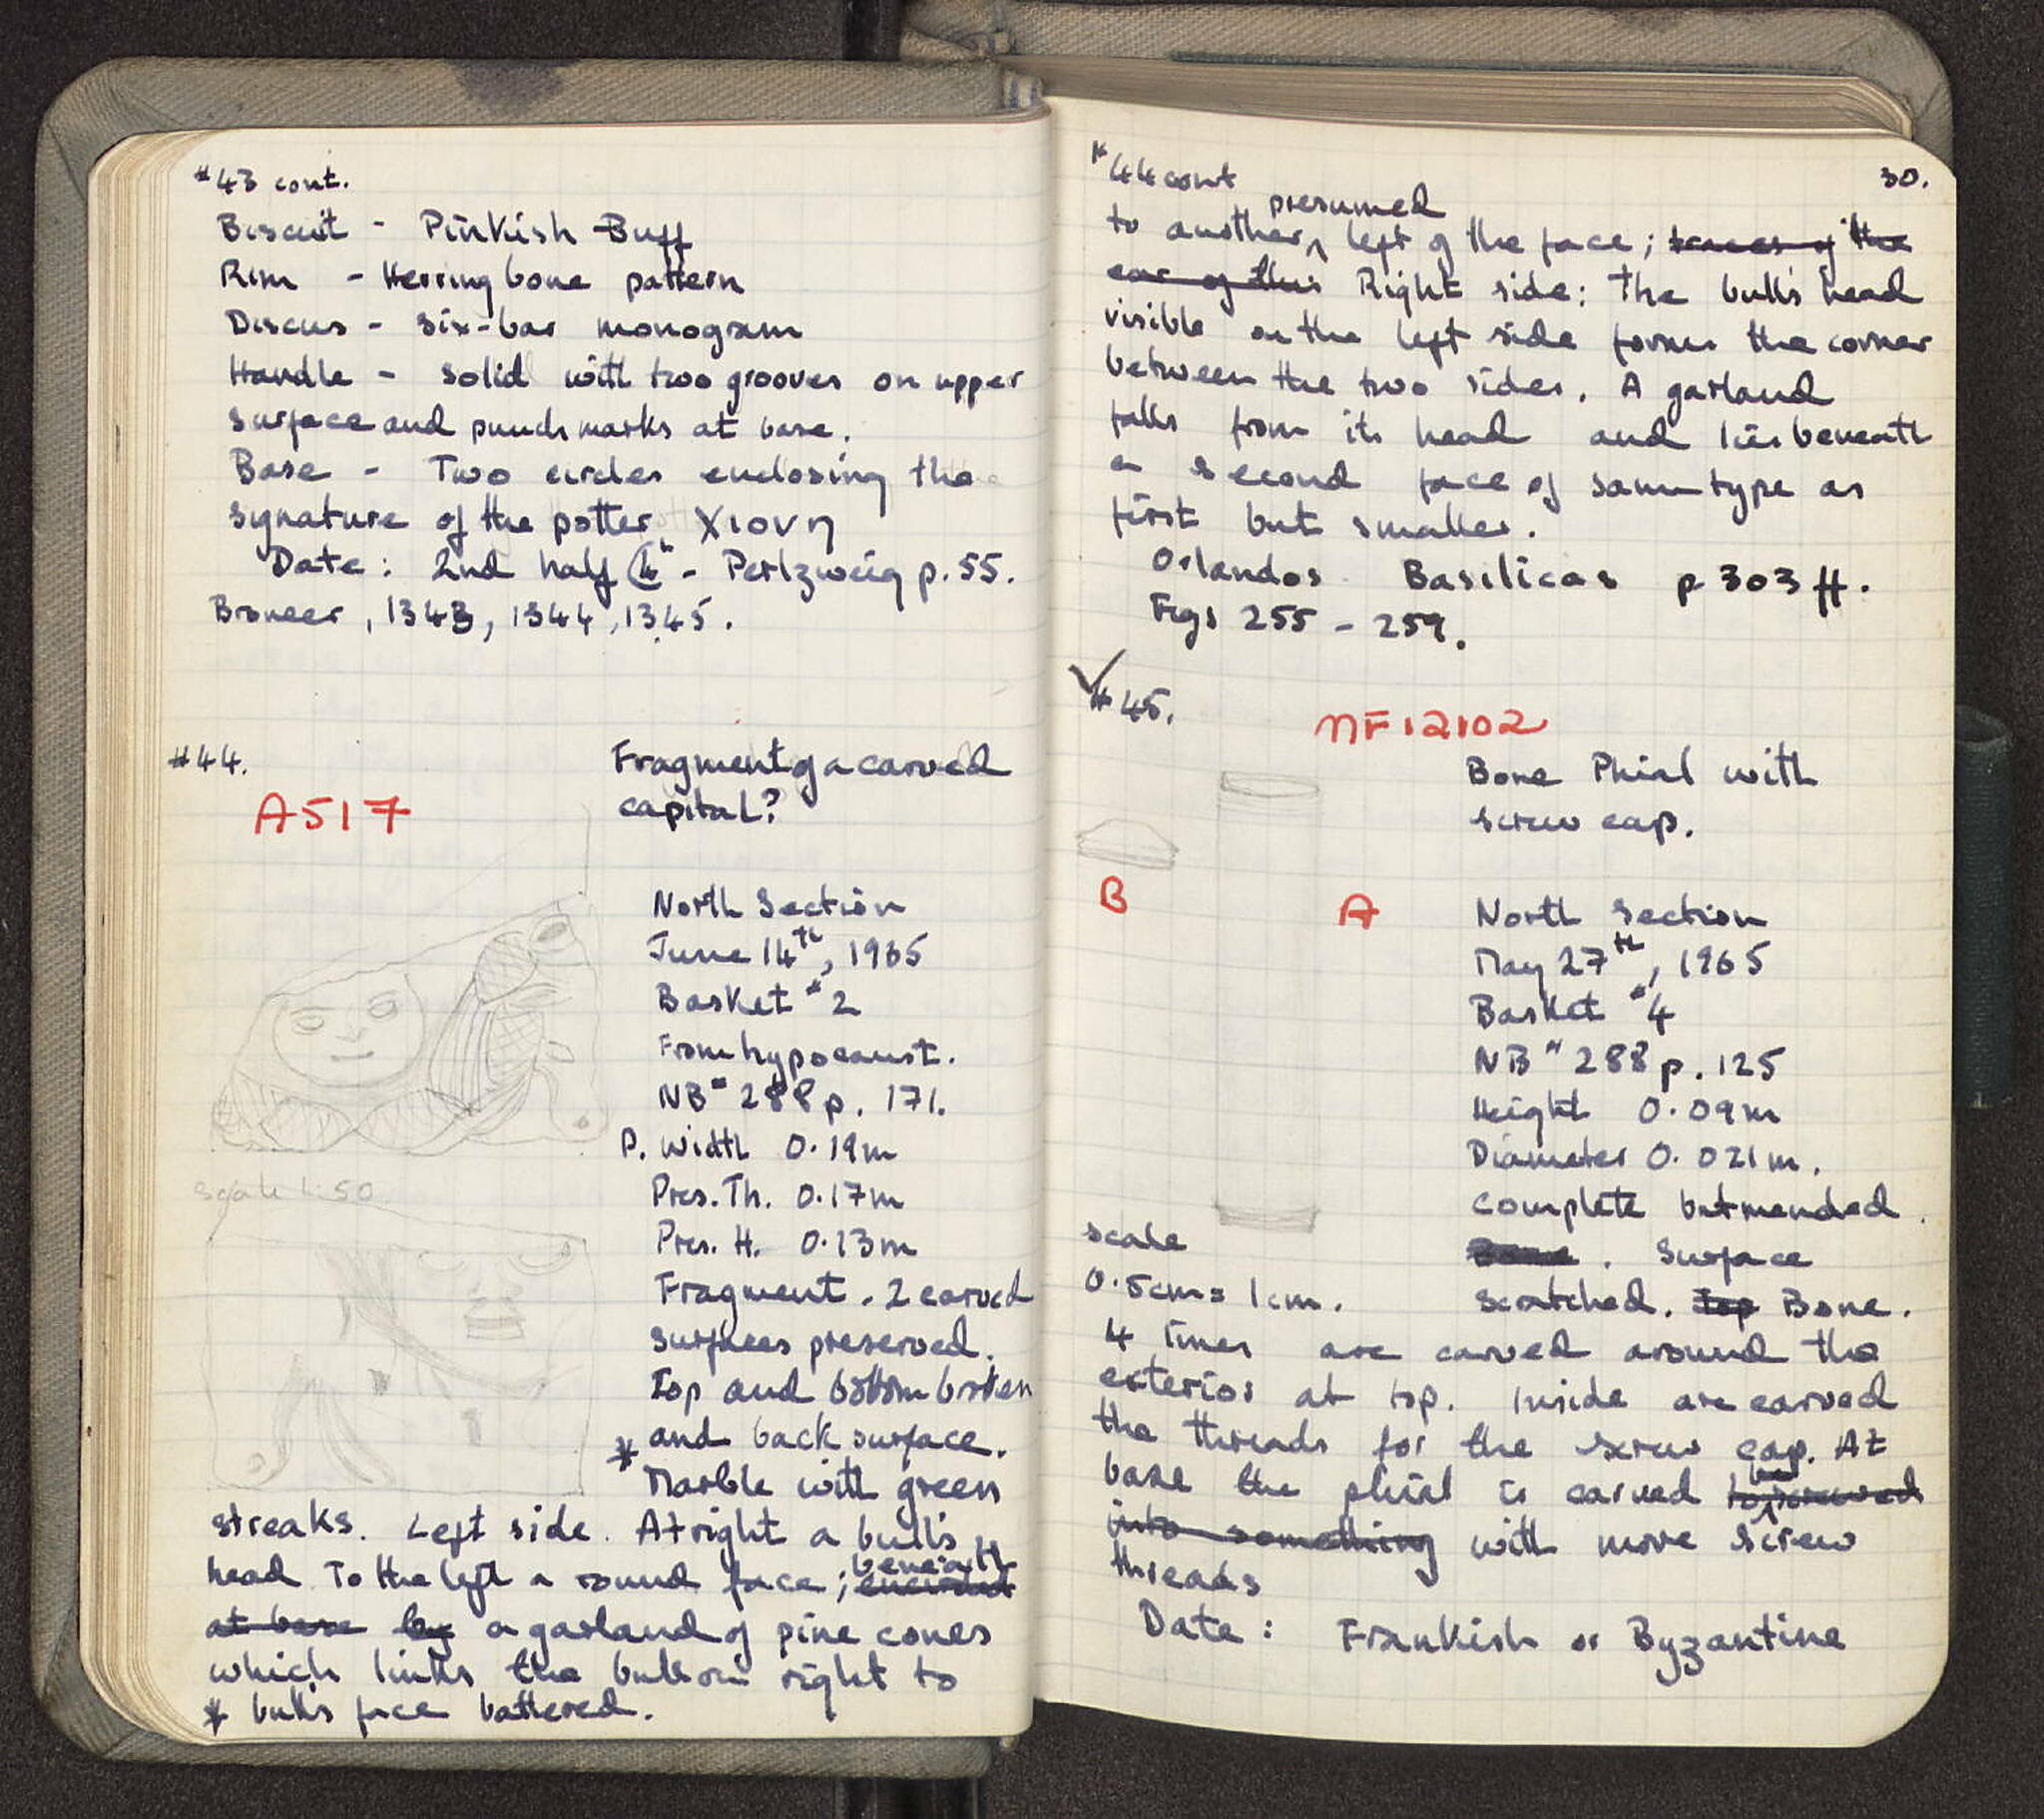 #43 cont.
Biscuit - Pinkish Buff
Rim - Herring bone pattern
Discus - six-bar monogram
Handle - solid with two grooves on upper
surface and punch marks at base.
Base - Two circles enclosing the
signature of the potter Χιονη
Date: 2nd half - Perlzweig p. 55.
Broneer, 1343, 1344, 1345.
#44.
A517
Fragment of a carved
capital?
North Section
June 14th, 1965
Basket #2
From hypocaust.
NB #288 p. 171.
P. Width 0.19m
Pres. Th. 0.17m
Pres. H. 0.13m
Fragment. 2 carved
surfaces preserved.
Top and bottom broken
and back surface.
* Marble with green
scale 1:50
streaks. Left side. At right a bull's
head. To the left a round face; beneath
at base by a garland of pine cones
which links the bull on right to
* bull's face battered.
#44 cont
30.
presumed
to another, left of the face; traces of the
ear of this Right side: The bull's head
visible on the left side forms the corner
between the two sides. A garland
falls from its head and lies beneath
a second face of same type as
first but smaller.
Orlandos Basilicas p 303 ff.
Figs 255 - 259.
✓
#45.
NF12102
Bone Phial with
screw cap.
B
A
North Section
May 27th, 1965
Basket #4
NB #288 p. 125
Height 0.09m
Diameter 0.021m.
Complete but mended.
Bone. Surface
scratched. Top Bone.
scale
0.5cm = 1cm.
4 lines are carved around the
exterior at top. Inside are carved
the threads for the screw cap. At
base the phial is carved to be screwed
into something with more screw
threads
Date: Frankish or Byzantine